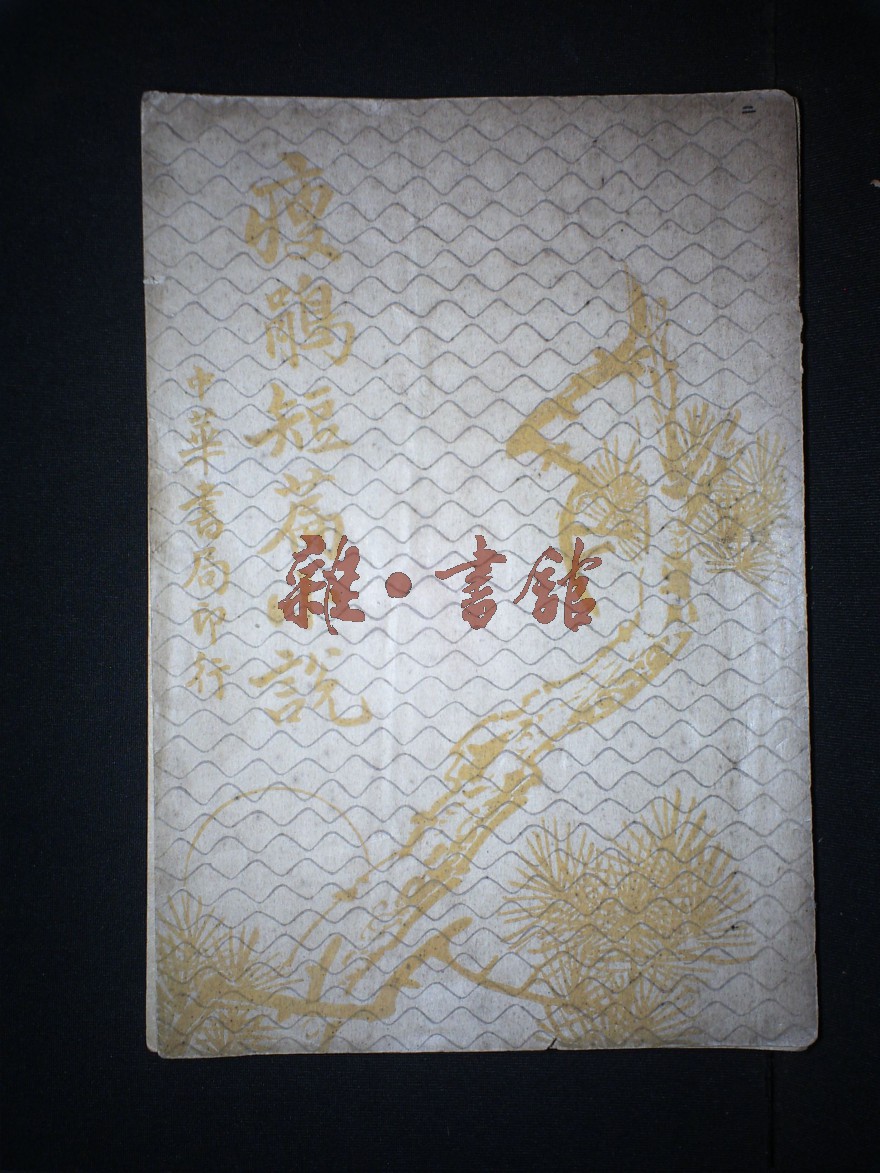 二
瘦鵑短篇小說
中華書局印行
雜·書館